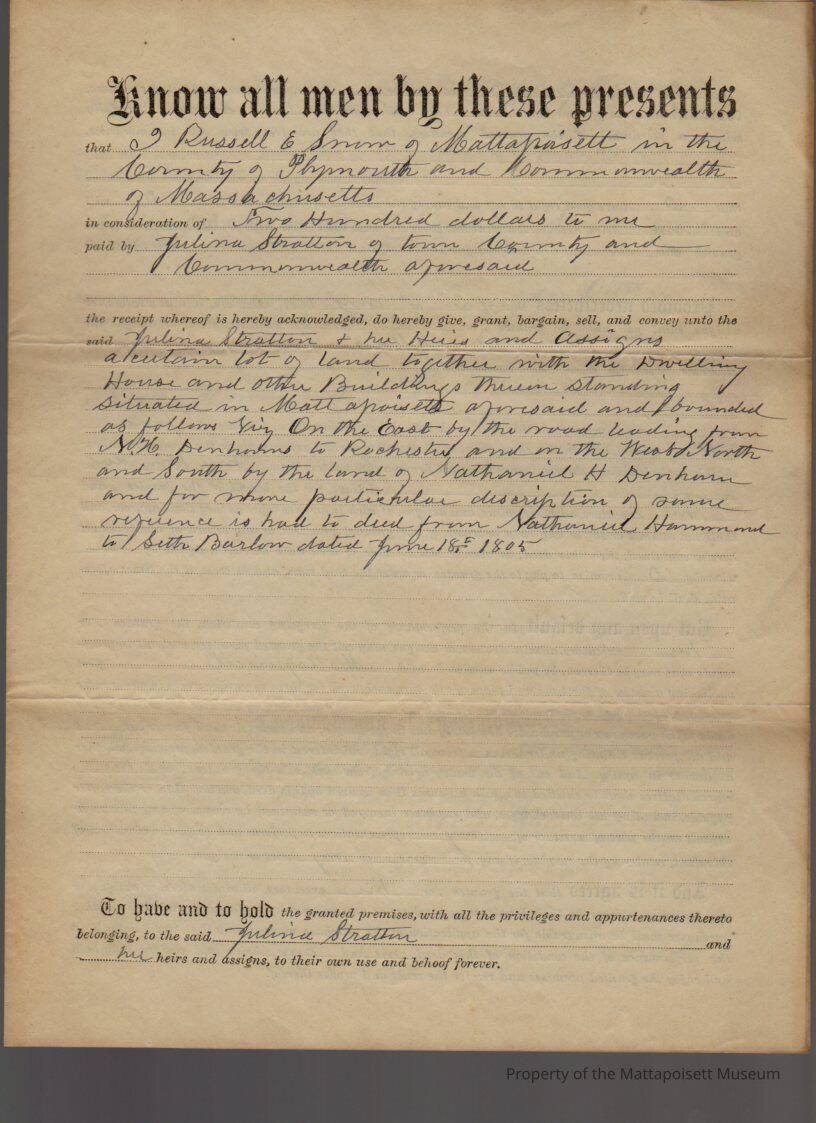 Know all men by these presents
that I Russell E Snow of Mattapoisett in the
County of Plymouth and Commonwealth
of Massachusetts
in consideration of Two Hundred dollars to me
paid by Julina Stratton of town County and
Commonwealth aforesaid
the receipt whereof is hereby acknowledged, do hereby give, grant, bargain, sell, and convey unto the
said Julina Stratton & her Heirs and Assigns
a certain lot of land together with the Dwelling
House and other Buildings thereon standing
situated in Mattapoisett aforesaid and bounded
as follows Viz On the East by the road leading from
N. H. Denhams to Rochester and on the West North
and South by the land of Nathaniel H Denham
and for more particular discription of same
reference is had to deed from Nathaniel Hammond
to Seth Barlow dated June 18th 1805
To have and to hold the granted premises, with all the privileges and appurtenances thereto
belonging, to the said Julina Stratton and
her heirs and assigns, to their own use and behoof forever.
Property of the Mattapoisett Museum